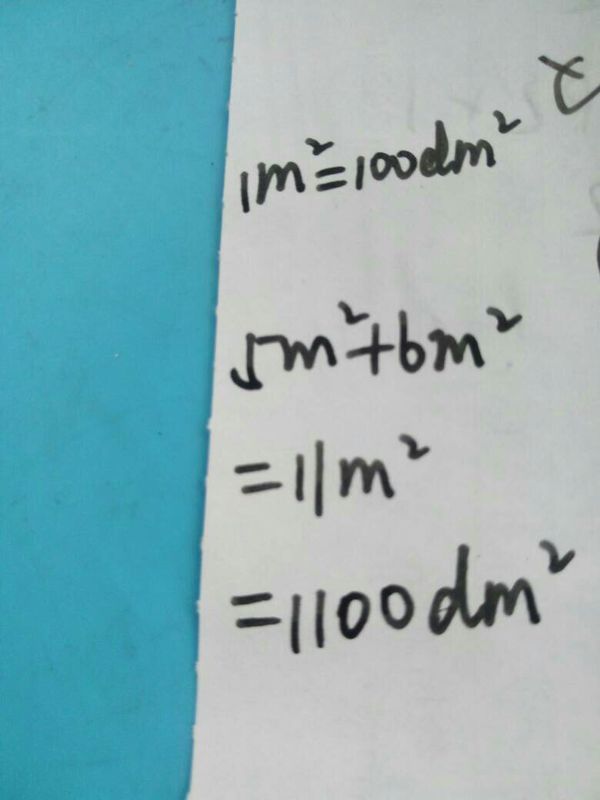 1m²=100dm²
5m²+6m²
=11m²
=1100dm²